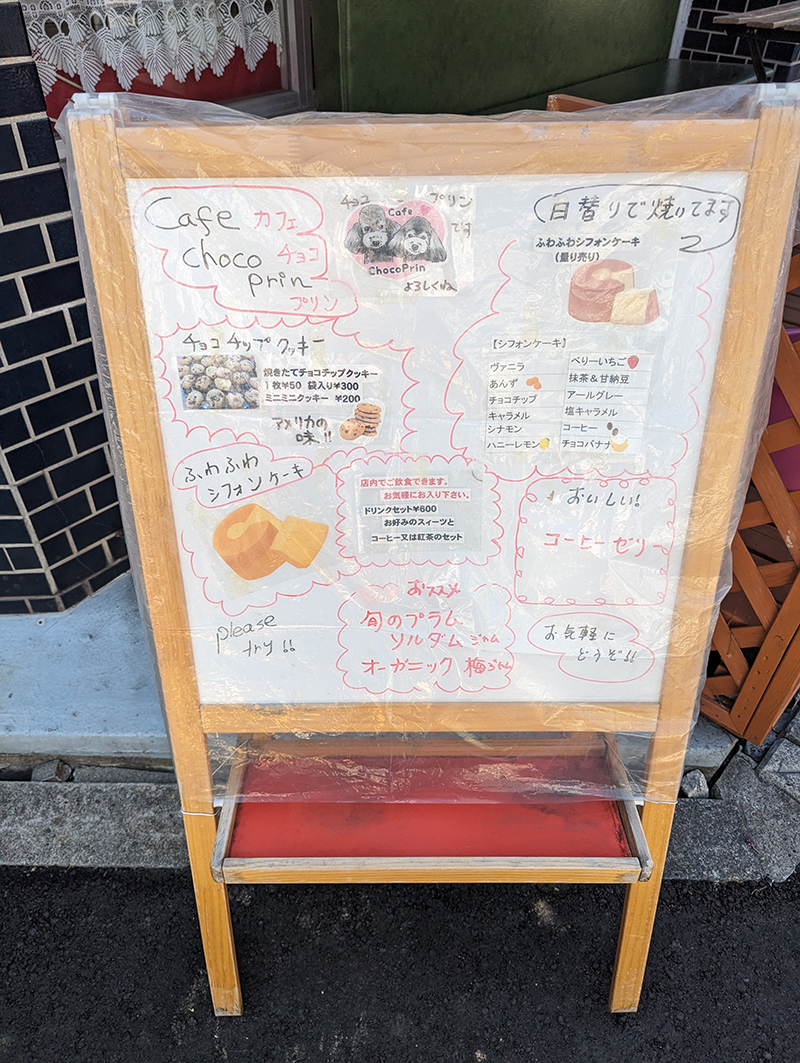 Cafe カフェ
choco チョコ
prin
プリン
チョコ プリン
です
Cafe
ChocoPrin
よろしくね
日替りで焼いてます
ふわふわシフォンケーキ
(量り売り)
【シフォンケーキ】
ヴァニラ
あんず
チョコチップ
キャラメル
シナモン
ハニーレモン
べりーいちご
抹茶&甘納豆
アールグレー
塩キャラメル
コーヒー
チョコバナナ
チョコチップクッキー
焼きたてチョコチップクッキー
1枚¥50 袋入り¥300
ミニミニクッキー ¥200
アメリカの
味!!
ふわふわ
シフォンケーキ
please
try!!
店内でご飲食できます。
お気軽にお入り下さい。
ドリンクセット¥600
お好みのスィーツと
コーヒー又は紅茶のセット
おススメ
旬のプラム
ソルダムジャム
オーガニック 梅ジャム
おいしい!
コーヒーゼリー
お気軽に
どうぞ!!